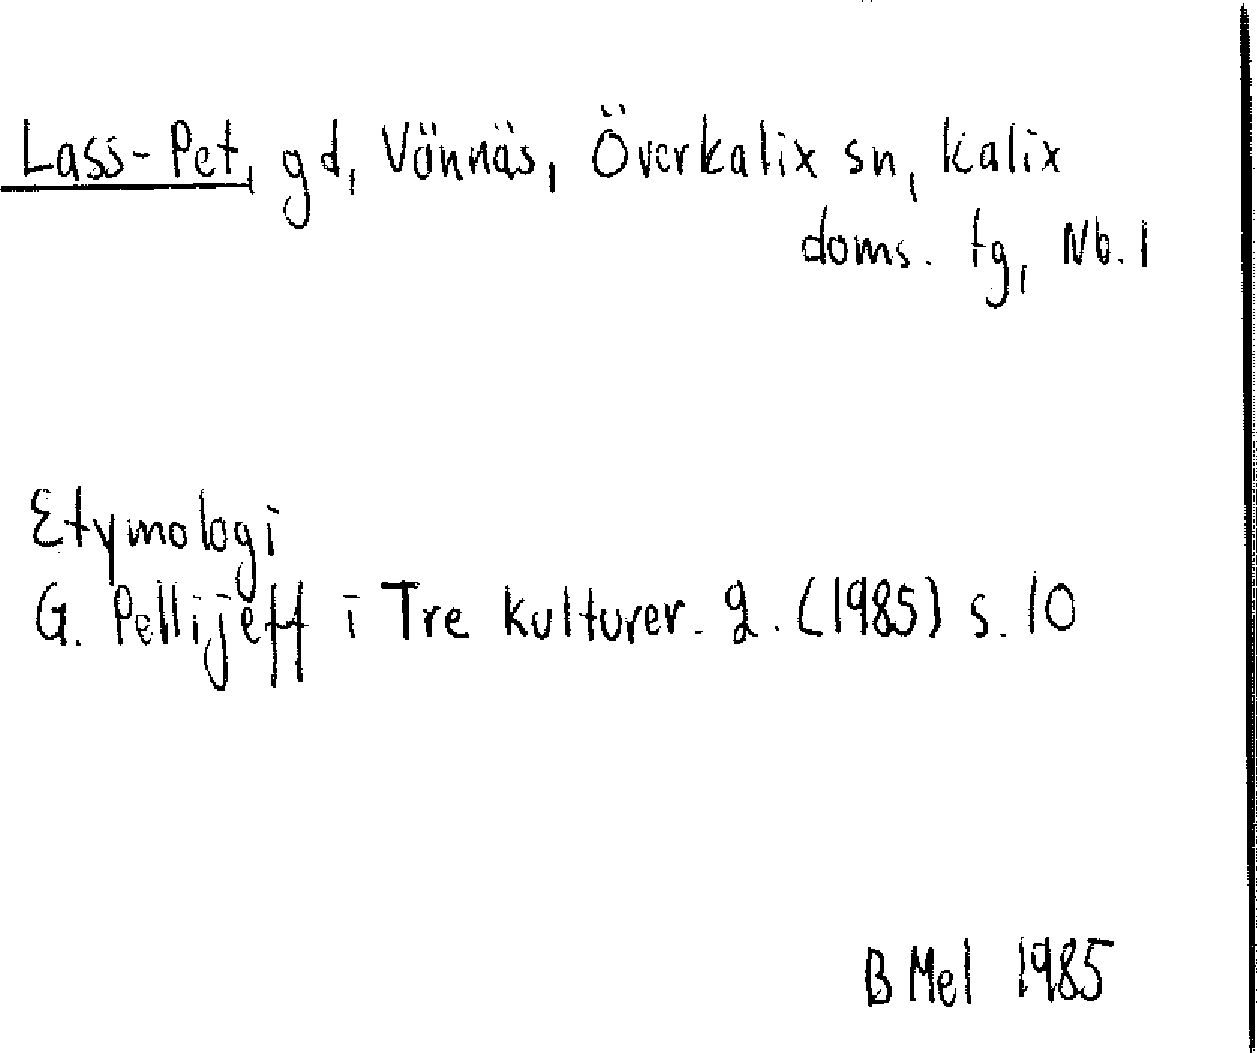 Lass-Pet, gd, Vännäs, Överkalix sn, Kalix
doms. tg, Nb. l
Etymologi
G. Pellijeff i Tre kulturer. 2. (1985) s. 10
B Mel 1985